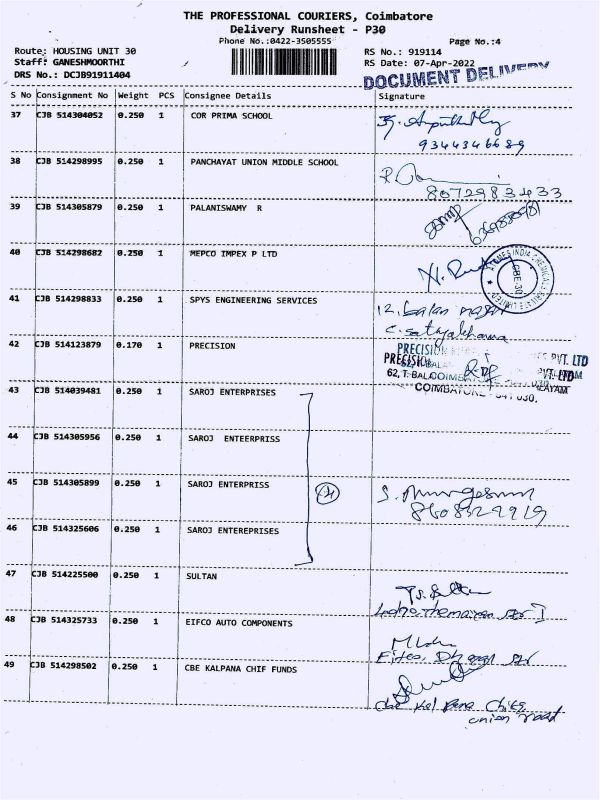 THE PROFESSIONAL COURIERS, Coimbatore
Delivery Runsheet - P30
Phone No.:0422-3505555
Page No.:4
Route: HOUSING UNIT 30
RS No.: 919114
Staff: GANESHMOORTHI
RS Date: 07-Apr-2022
DRS No.: DCJB91911404
DOCUMENT DELIVERY
S No Consignment No Weight PCS Consignee Details Signature
37 CJB 514304052 0.250 1 COR PRIMA SCHOOL
9344346689
38 CJB 514298995 0.250 1 PANCHAYAT UNION MIDDLE SCHOOL
8072983433
39 CJB 514305879 0.250 1 PALANISWAMY R
40 CJB 514298682 0.250 1 MEPCO IMPEX P LTD
CBE-30
41 CJB 514298833 0.250 1 SPYS ENGINEERING SERVICES
12, balan nagar
C. Sathyabhama
42 CJB 514123879 0.170 1 PRECISION
PRECISION
PVT. LTD
PRECISION
PVT. LTD
62, T. BALA
COIMBATORE
43 CJB 514039481 0.250 1 SAROJ ENTERPRISES
44 CJB 514305956 0.250 1 SAROJ ENTEERPRISS
45 CJB 514305899 0.250 1 SAROJ ENTERPRISS
4
S. Murugesan
8608329919
46 CJB 514325606 0.250 1 SAROJ ENTEREPRISES
47 CJB 514225500 0.250 1 SULTAN
48 CJB 514325733 0.250 1 EIFCO AUTO COMPONENTS
49 CJB 514298502 0.250 1 CBE KALPANA CHIF FUNDS
cbe Kalpana Chits
union road